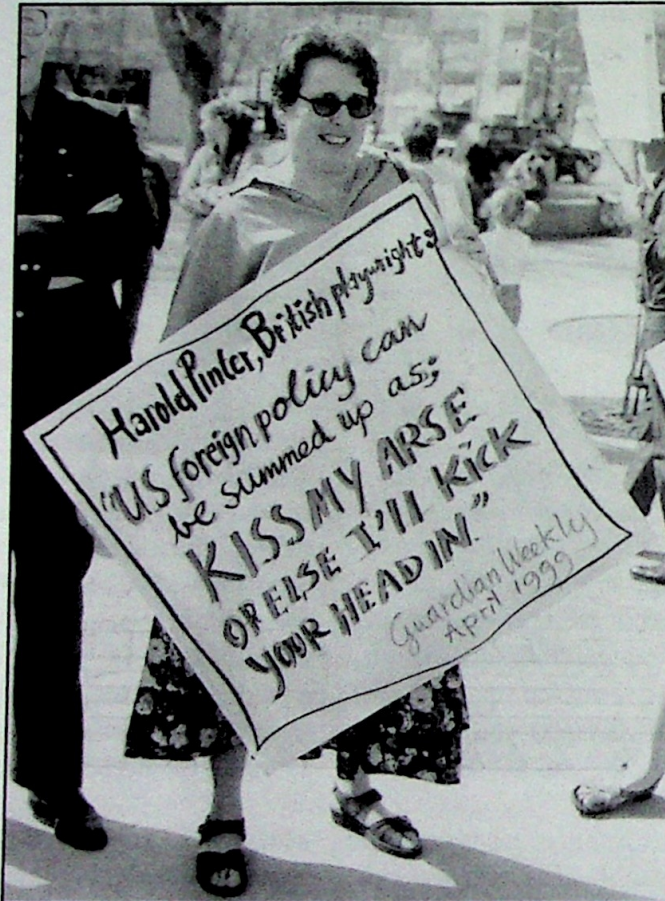 Harold Pinter, British playwright:
"US foreign policy can
be summed up as;
KISS MY ARSE
OR ELSE I'll Kick
YOUR HEAD IN."
Guardian Weekly
April 1999